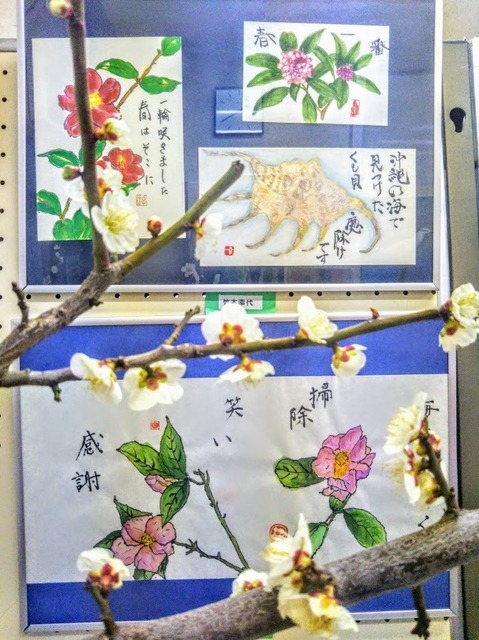 春一番
一輪咲きました
春はそこに
沖縄の海で
見つけた
くも貝
魔除け
です
掃除
笑い
感謝